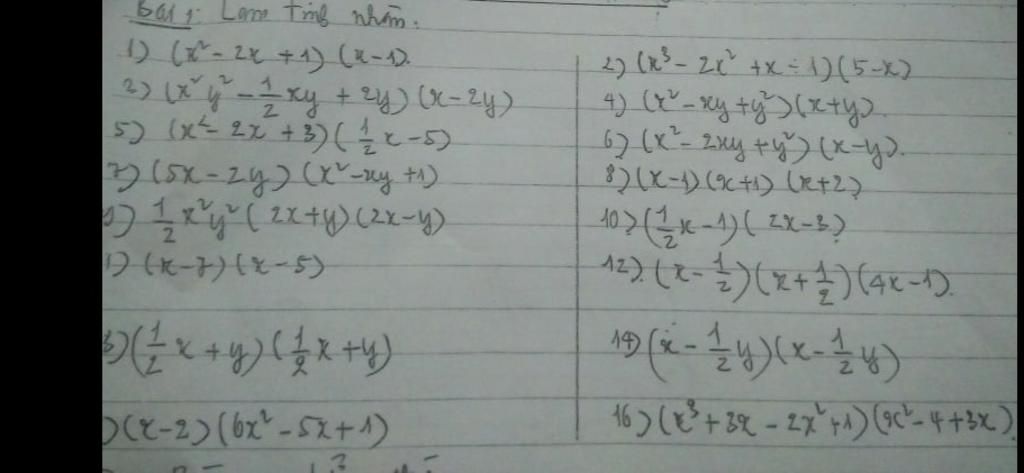 Bài 1: Làm tính nhân.
1) (x² - 2x + 1) (x - 1).
2) (x³ - 2x² + x - 1) (5 - x)
3) (x²y² - 1/2 xy + 2y) (x - 2y)
4) (x² - xy + y²) (x + y).
5) (x² - 2x + 3) (1/2 x - 5)
6) (x² - 2xy + y²) (x - y).
7) (5x - 2y) (x² - xy + 1)
8) (x - 1) (x + 1) (x + 2)
) 1/2 x²y² (2x + y) (2x - y)
10) (1/2 x - 1) (2x - 3)
1) (x - 7) (x - 5)
12) (x - 1/2) (x + 1/2) (4x - 1).
3) (1/2 x + y) (1/2 x + y)
14) (x - 1/2 y) (x - 1/2 y)
) (x - 2) (6x² - 5x + 1)
16) (x³ + 3x - 2x² + 1) (x² - 4 + 3x)